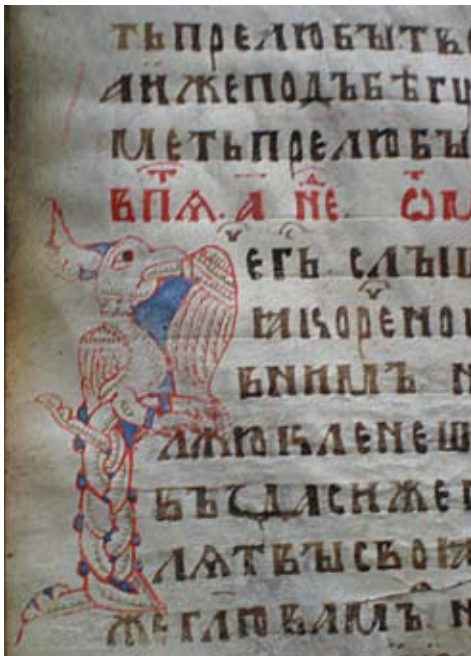 тьпрелюбытв
аиjжеподъбѣгш
меть прелюбы
в п҃ѧ. а҃ не҃. ѿм
егь слыш
ꙗкорено
внимъ н
лжюкленеш
въздасиже
лѧтвысвоꙗ
жеглювамъ н